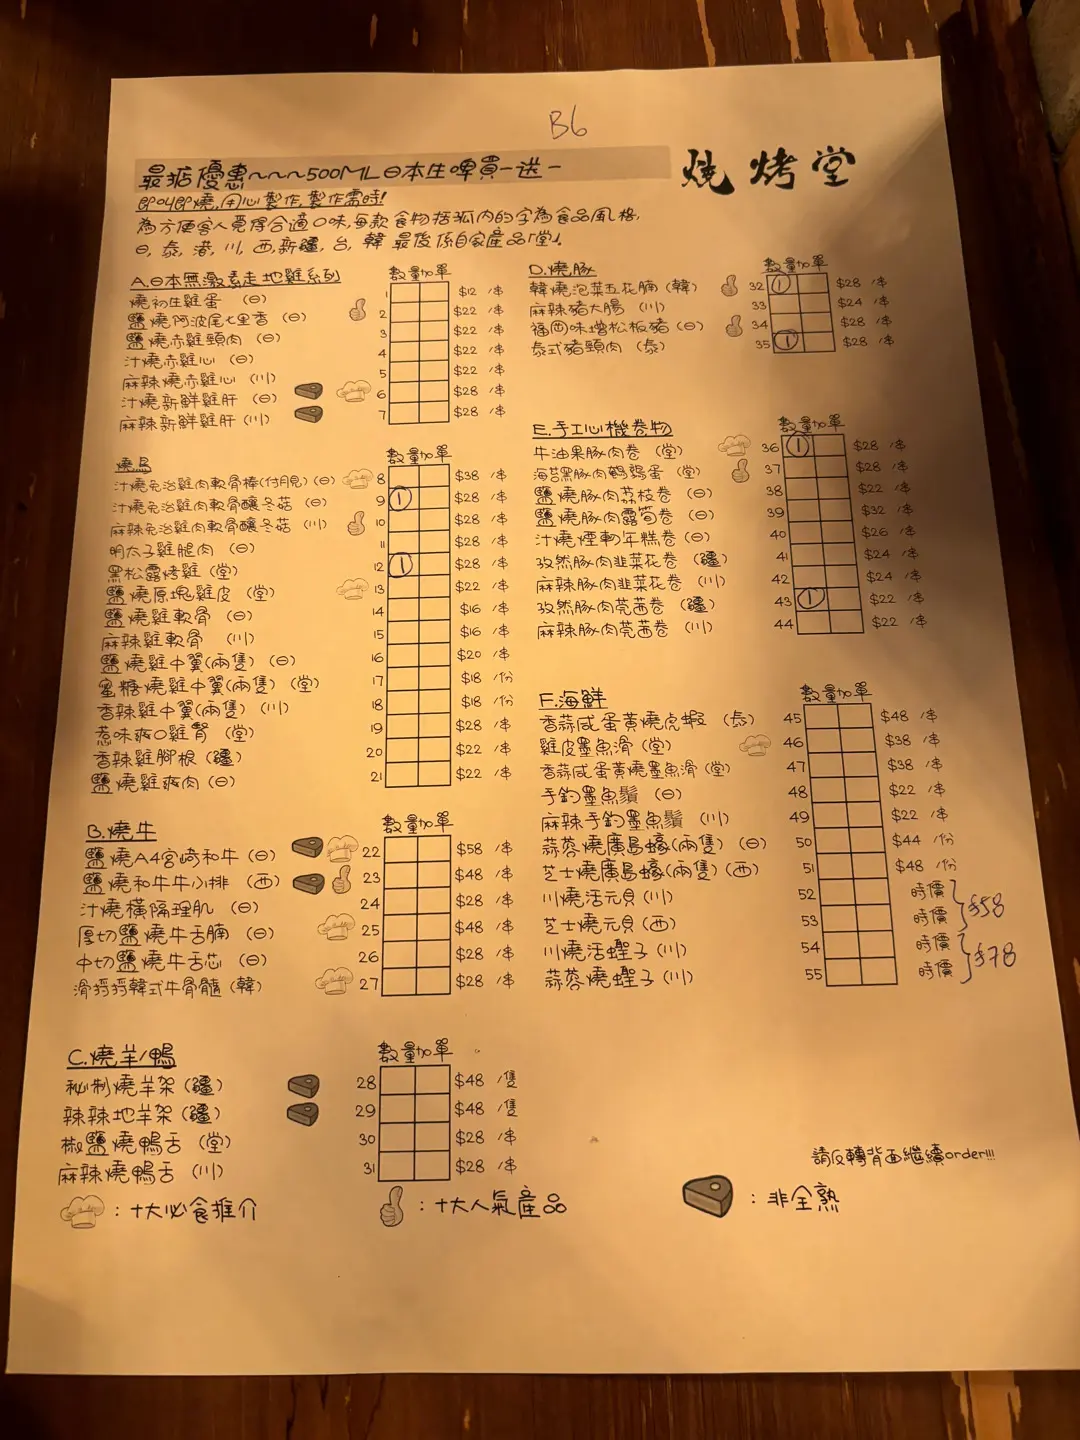 B6
最掂優惠~~~500ML日本生啤買一送一
燒烤堂
即叫即燒,用心製作,製作需時!
為方便客人覓得合適口味,每款食物括弧內的字為食品風格,
日, 泰, 港, 川, 西, 新疆, 台, 韓 最後係自家產品「堂」。
A.日本無激素走地雞系列 數量加單
燒初生雞蛋 (日) 1 $12 /串
鹽燒阿波尾七里香 (日) 2 $22 /串
鹽燒赤雞頸肉 (日) 3 $22 /串
汁燒赤雞心 (日) 4 $22 /串
麻辣燒赤雞心 (川) 5 $22 /串
汁燒新鮮雞肝 (日) 6 $28 /串
麻辣新鮮雞肝 (川) 7 $28 /串
燒鳥 數量加單
汁燒免治雞肉軟骨棒(付月見) (日) 8 $38 /串
汁燒免治雞肉軟骨釀冬菇 (日) 9 1 $28 /串
麻辣免治雞肉軟骨釀冬菇 (川) 10 $28 /串
明太子雞腿肉 (日) 11 $28 /串
黑松露烤雞 (堂) 12 1 $28 /串
鹽燒原塊雞皮 (堂) 13 $22 /串
鹽燒雞軟骨 (日) 14 $16 /串
麻辣雞軟骨 (川) 15 $16 /串
鹽燒雞中翼(兩隻) (日) 16 $20 /串
蜜糖燒雞中翼(兩隻) (堂) 17 $18 /份
香辣雞中翼(兩隻) (川) 18 $18 /份
惹味爽口雞腎 (堂) 19 $28 /串
香辣雞腳根 (疆) 20 $22 /串
鹽燒雞爽肉 (日) 21 $22 /串
B.燒牛 數量加單
鹽燒A4宮崎和牛 (日) 22 $58 /串
鹽燒和牛牛小排 (西) 23 $48 /串
汁燒橫隔理肌 (日) 24 $28 /串
厚切鹽燒牛舌腩 (日) 25 $48 /串
中切鹽燒牛舌芯 (日) 26 $28 /串
滑捋捋韓式牛骨髓 (韓) 27 $28 /串
C.燒羊/鴨 數量加單
祕制燒羊架 (疆) 28 $48 /隻
辣辣地羊架 (疆) 29 $48 /隻
椒鹽燒鴨舌 (堂) 30 $28 /串
麻辣燒鴨舌 (川) 31 $28 /串
D.燒豚 數量加單
韓燒泡菜五花腩 (韓) 32 1 $28 /串
麻辣豬大腸 (川) 33 $24 /串
福岡味增松板豬 (日) 34 $28 /串
泰式豬頸肉 (泰) 35 1 $28 /串
E.手工心機卷物 數量加單
牛油果豚肉卷 (堂) 36 1 $28 /串
海苔黑豚肉鵪鶉蛋 (堂) 37 $28 /串
鹽燒豚肉荔枝卷 (日) 38 $22 /串
鹽燒豚肉露筍卷 (日) 39 $32 /串
汁燒煙韌年糕卷 (日) 40 $26 /串
孜然豚肉韭菜花卷 (疆) 41 $24 /串
麻辣豚肉韭菜花卷 (川) 42 $24 /串
孜然豚肉芫茜卷 (疆) 43 1 $22 /串
麻辣豚肉芫茜卷 (川) 44 $22 /串
F.海鮮 數量加單
香蒜咸蛋黃燒虎蝦 (泰) 45 $48 /串
雞皮墨魚滑 (堂) 46 $38 /串
香蒜咸蛋黃燒墨魚滑 (堂) 47 $38 /串
手釣墨魚鬚 (日) 48 $22 /串
麻辣手釣墨魚鬚 (川) 49 $22 /串
蒜蓉燒廣島蠔(兩隻) (日) 50 $44 /份
芝士燒廣島蠔(兩隻) (西) 51 $48 /份
川燒活元貝 (川) 52 時價
芝士燒元貝 (西) 53 時價 $58
川燒活蟶子 (川) 54 時價
蒜蓉燒蟶子 (川) 55 時價 $78
請反轉背面繼續order!!!
: 十大必食推介 : 十大人氣產品 : 非全熟